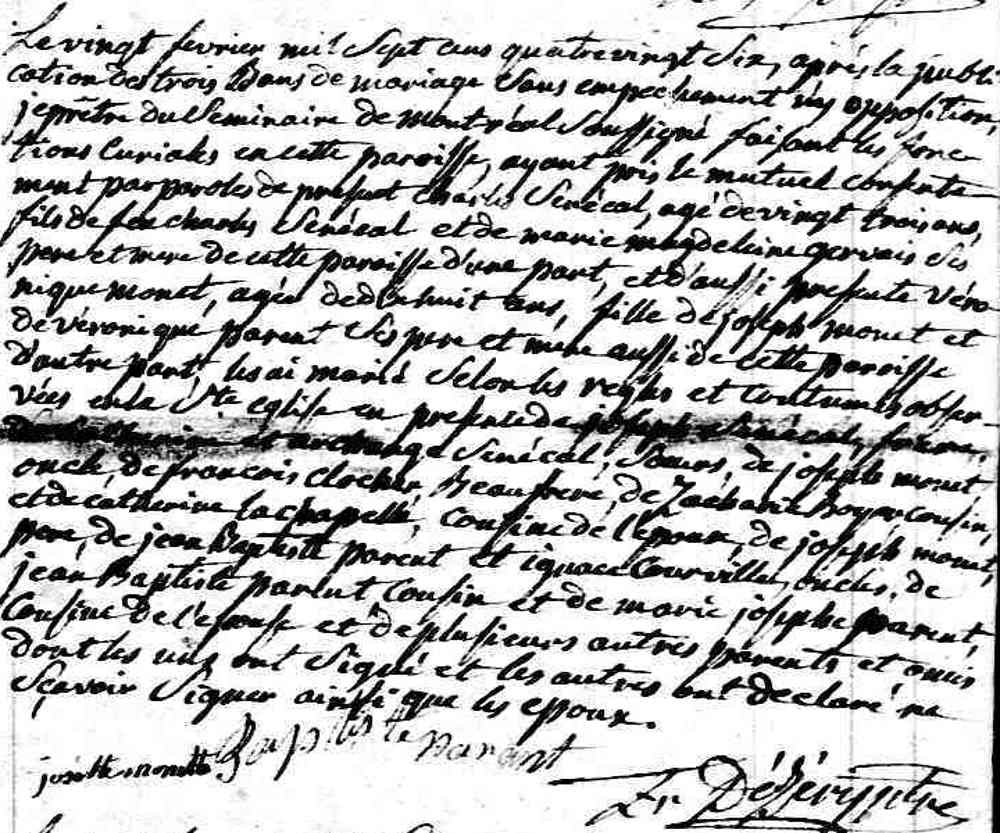 Le vingt fevrier mil Sept cens quatrevingt Six, après la publi
cation des trois Bans de mariage Sans empechement ny opposition,
je prêtre du Seminaire de montréal Soussigné faisant les fonc
tions Curiales en cette paroisse, ayant pris le mutuel consente
ment par paroles de present charles Senécal, agé de vingt trois ans,
fils de feu charles Senécal et de marie magdelaine gervais Ses
pere et mere de cette paroisse d'une part, et d'aussi presente véro
nique monet, agée de dixhuit ans, fille de joseph monet et
de véronique parent Ses pere et mere aussi de cette paroisse
d'autre part, les ai marié Selon les regles et coutumes obser
vées en la Ste eglise en presence de joseph Senécal, frere,
et archange Senécal, Sœurs, de joseph monet
oncle, de francois clocher Beaufrere, de Zacharie Boyer cousin,
et de catherine lachapelle, cousine de l'epoux, de joseph monet,
pere, de jean Baptiste parent et ignace Courville, oncles, de
jean Baptiste parent Cousin et de marie josephe parent,
Cousine de l'epouse et de plusieurs autres parents et amis
dont les uns ont Signé et les autres ont declaré ne
Sçavoir Signer ainsi que les epoux.
Baptiste parant
josette monette
Fr Dézéry ptre